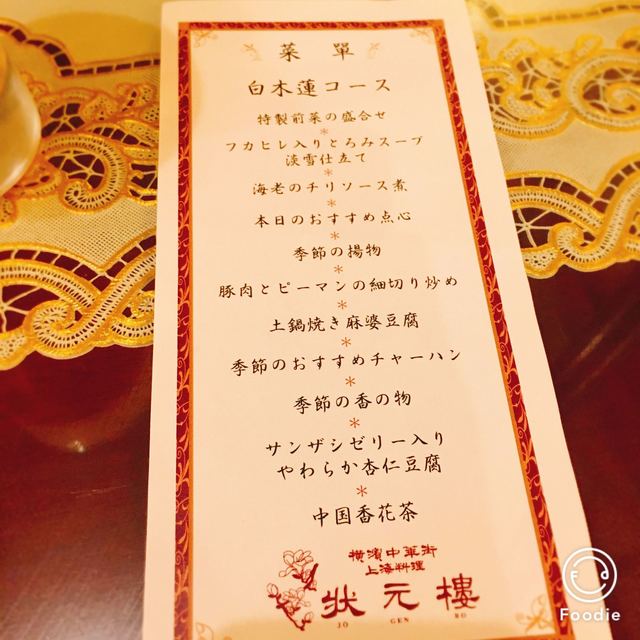 菜單
白木蓮コース
特製前菜の盛合せ
*
フカヒレ入りとろみスープ
淡雪仕立て
*
海老のチリソース煮
*
本日のおすすめ点心
*
季節の揚物
*
豚肉とピーマンの細切り炒め
*
土鍋焼き麻婆豆腐
*
季節のおすすめチャーハン
*
季節の香の物
*
サンザシゼリー入り
やわらか杏仁豆腐
*
中国香花茶
横濱中華街
上海料理
状元樓
JO GEN RO
Foodie